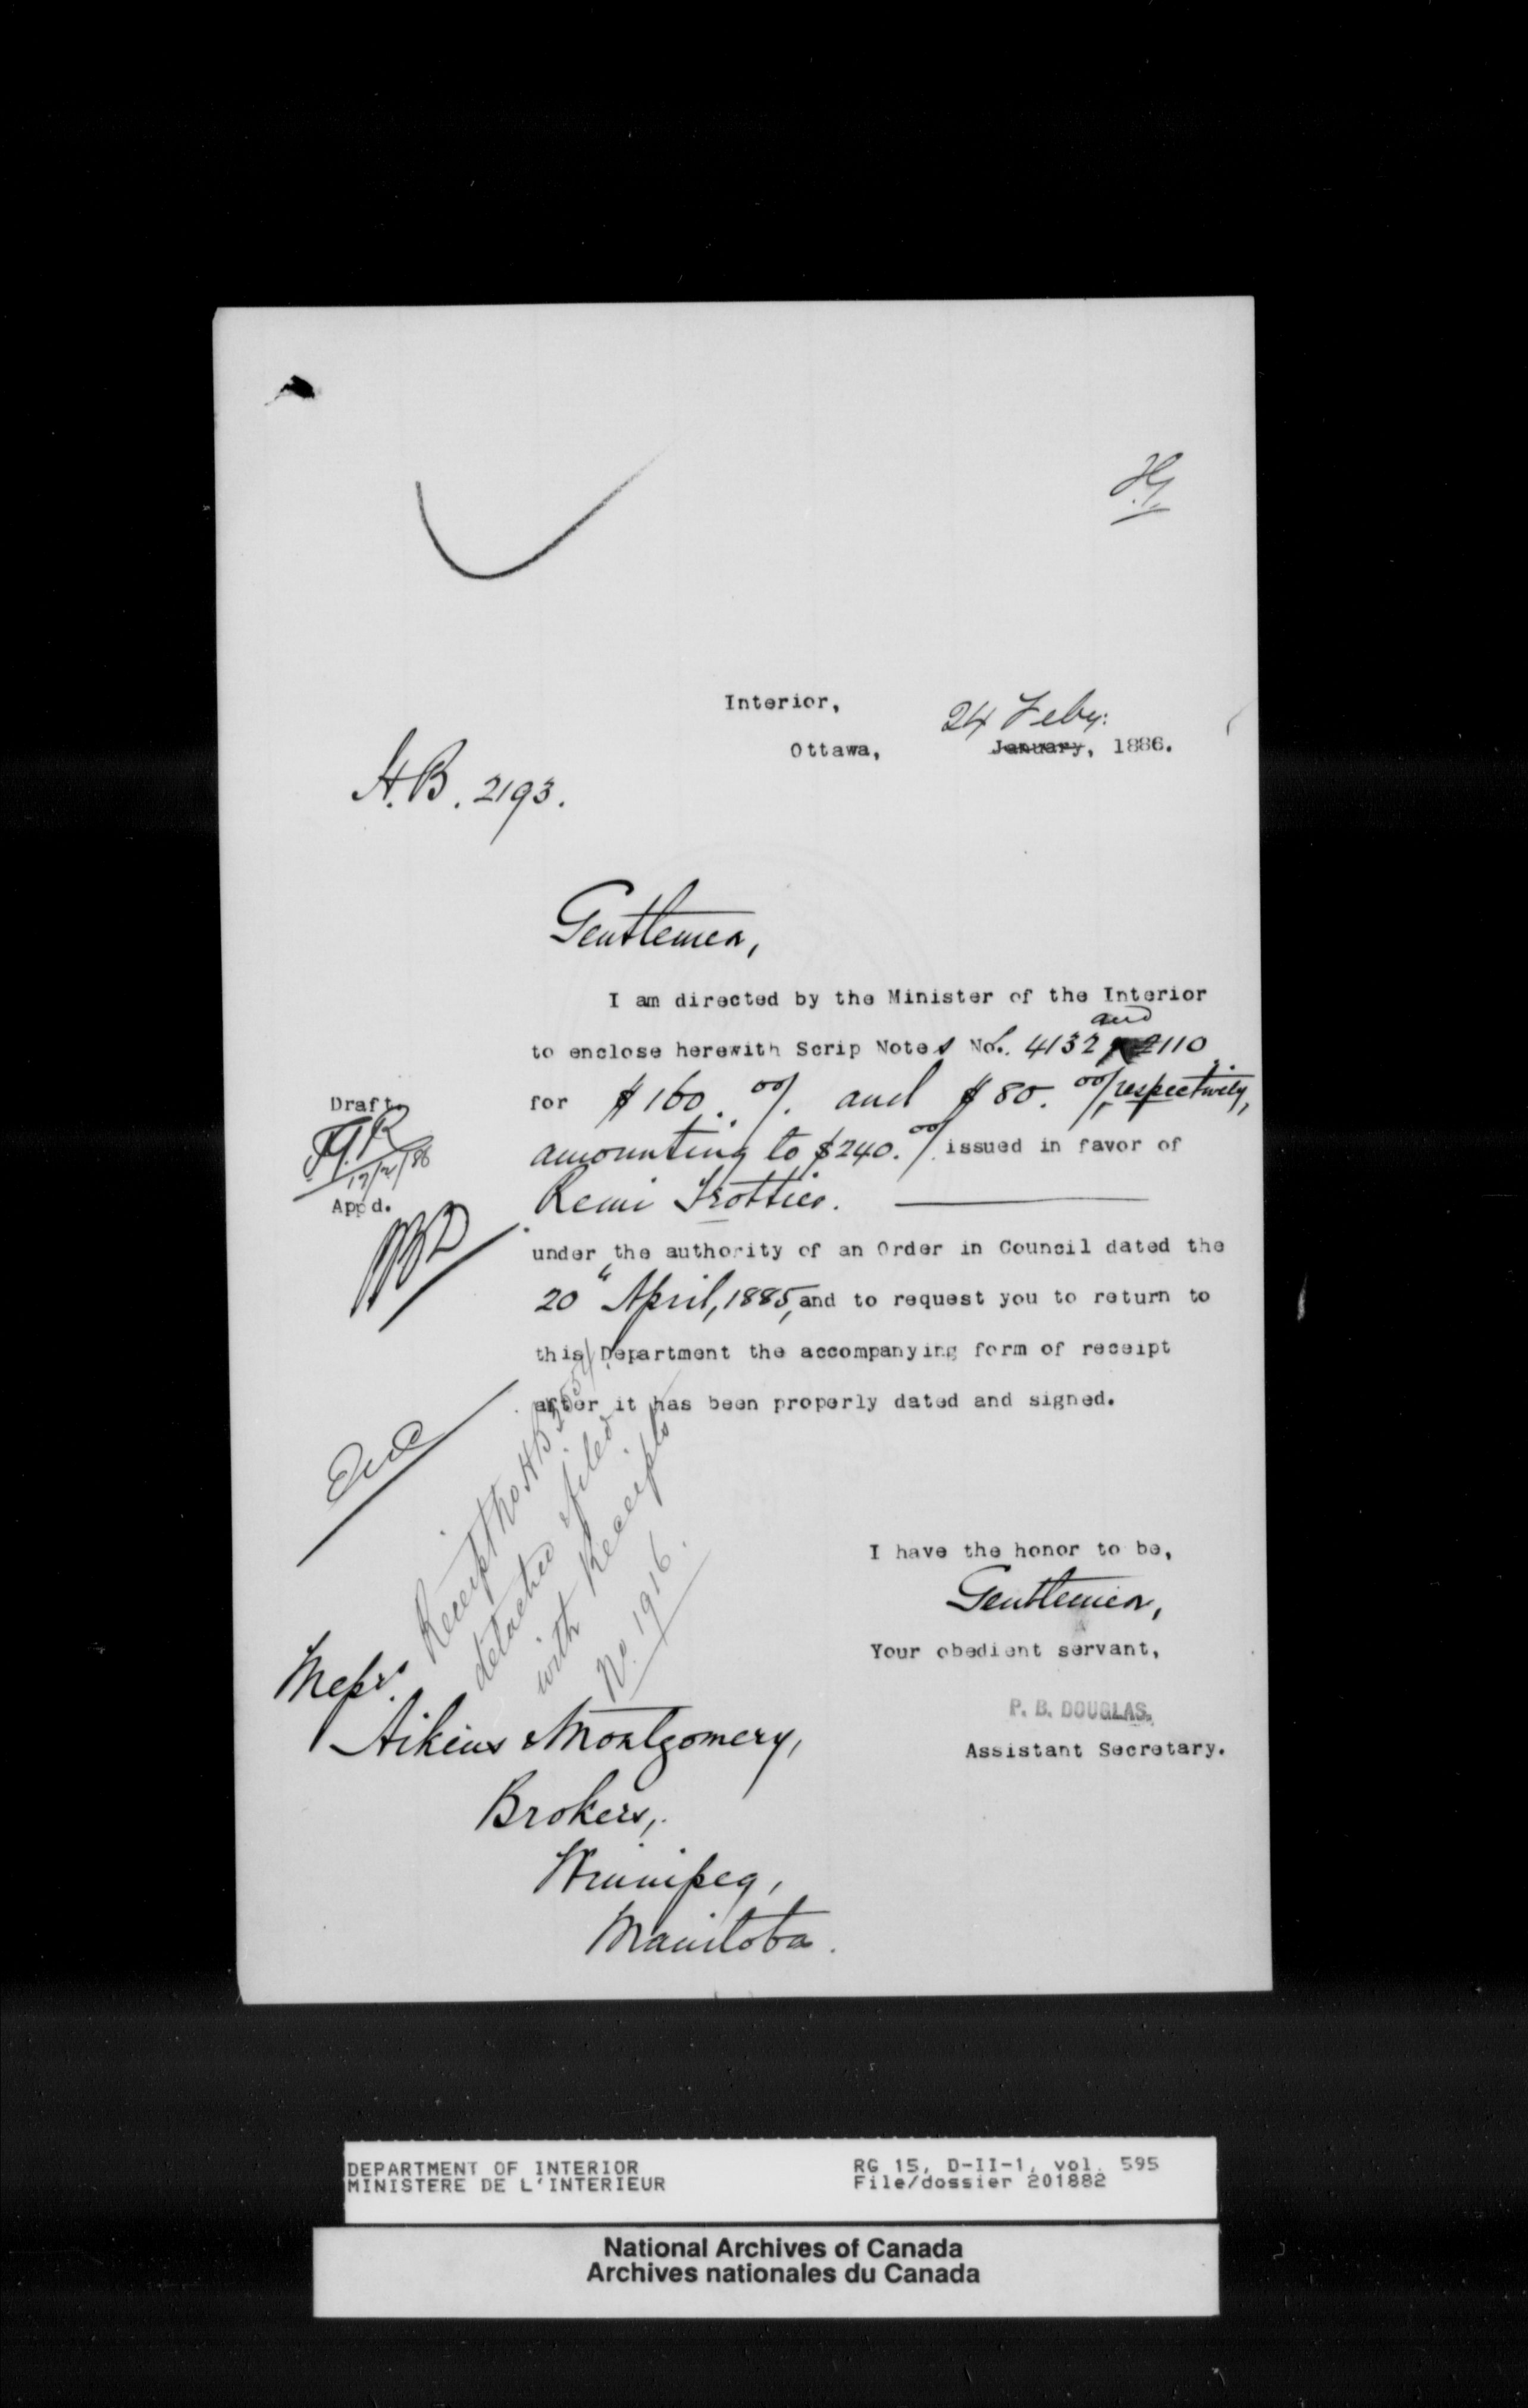 H.
Interior,
24 Feby:
Ottawa, January, 1886.
H.B. 2193.
Gentlemen,
I am directed by the Minister of the Interior
and
to enclose herewith Scrip Notes Nos. 4132 2110
for $160.00/. and $80.00/. respectively,
Draft.
amounting to $240.00/. issued in favor of
17/2/86
Remi Trottier.
App'd.
under the authority of an Order in Council dated the
20" April, 1885, and to request you to return to
this Department the accompanying form of receipt
after it has been properly dated and signed.
Receipt No HB
detached & filed
with Receipts
No. 1916.
I have the honor to be,
Gentlemen,
Your obedient servant,
P. B. DOUGLAS.
Assistant Secretary.
Messrs.
Aikins & Montgomery,
Brokers,
Winnipeg,
Manitoba.
DEPARTMENT OF INTERIOR
MINISTERE DE L'INTERIEUR
RG 15, D-II-1, vol. 595
File/dossier 201882
National Archives of Canada
Archives nationales du Canada